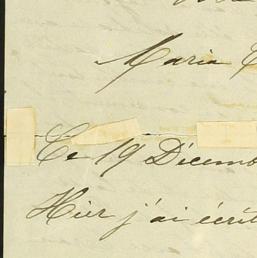 Maria
Ce 19 Décemb
Hier j'ai écrit